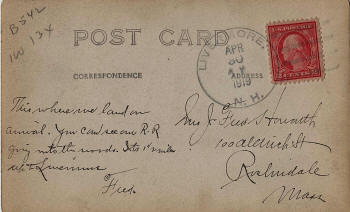 B542
1W 13x
POST CARD
CORRESPONDENCE
ADDRESS
LIVERMORE,
APR
30
1919
N. H.
This where we land on
arrival. You can see our R-R
going into the woods. Its 1½ miles
up Livermore
Fred
Mrs J Fred Howarth
100 aldrich St
Roslindale
Mass